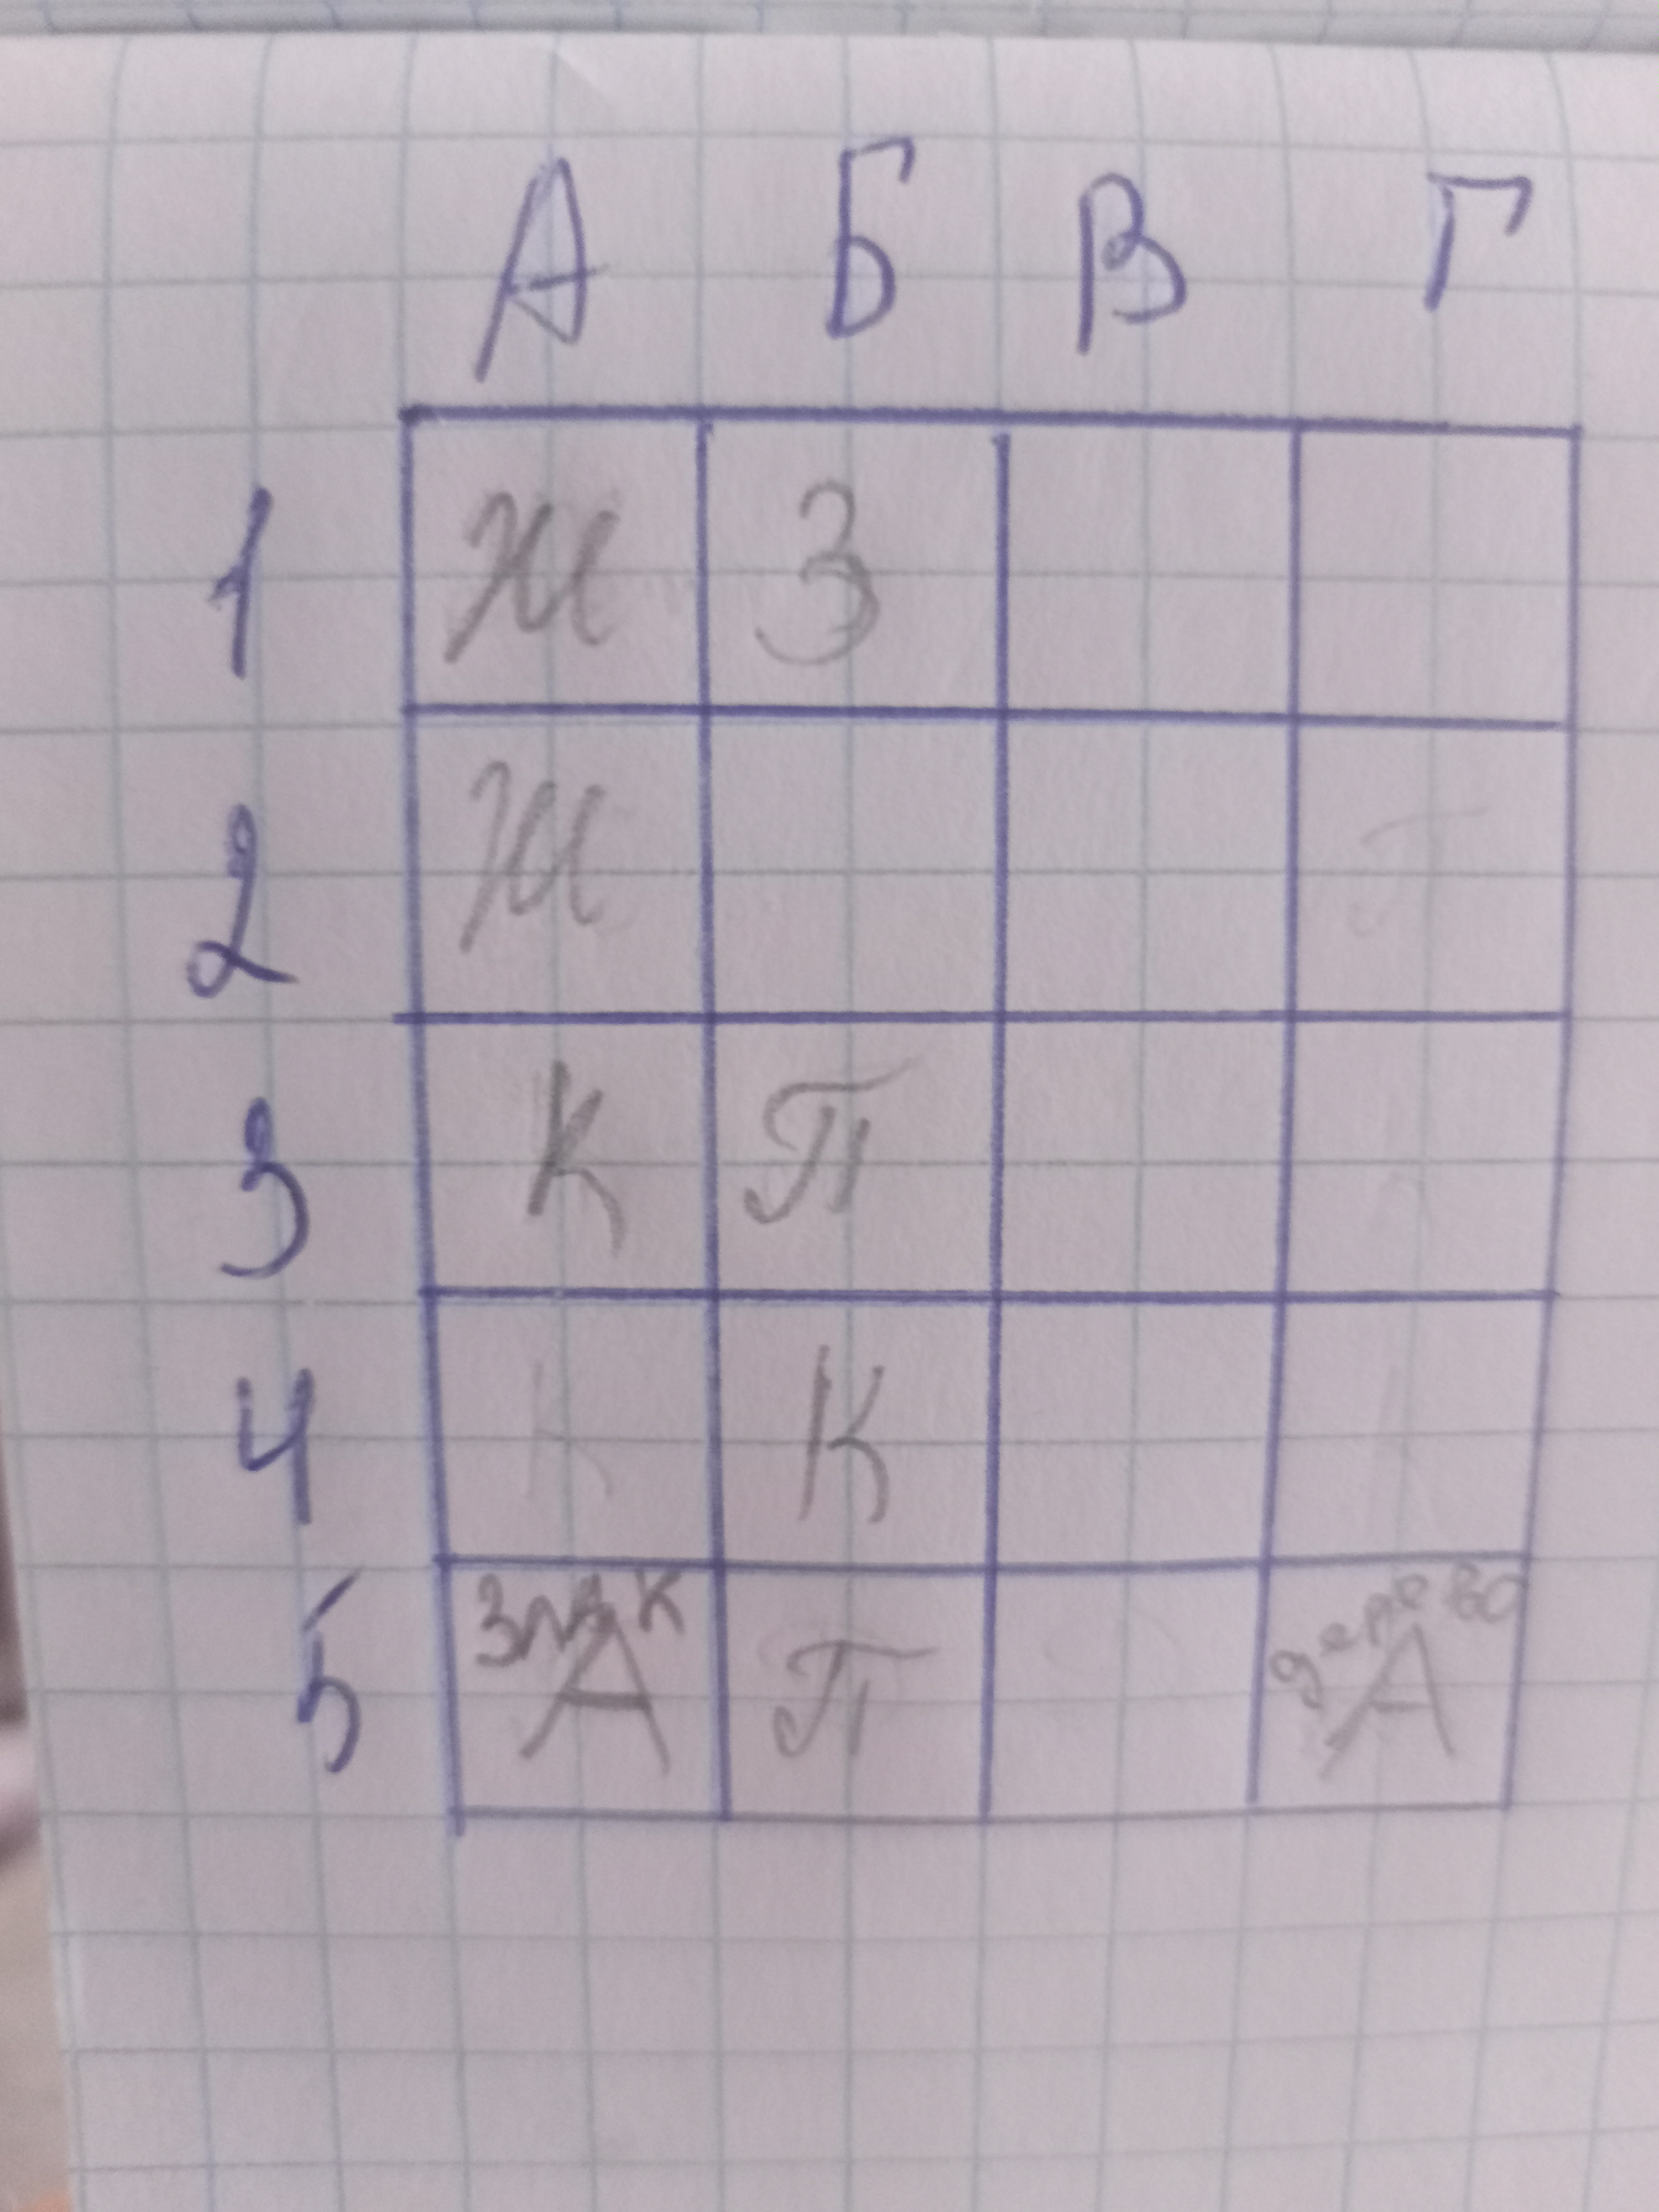 А Б В Г
1 Ж З
2 Ж
3 К П
4 К К
5 Злак А П дерево А